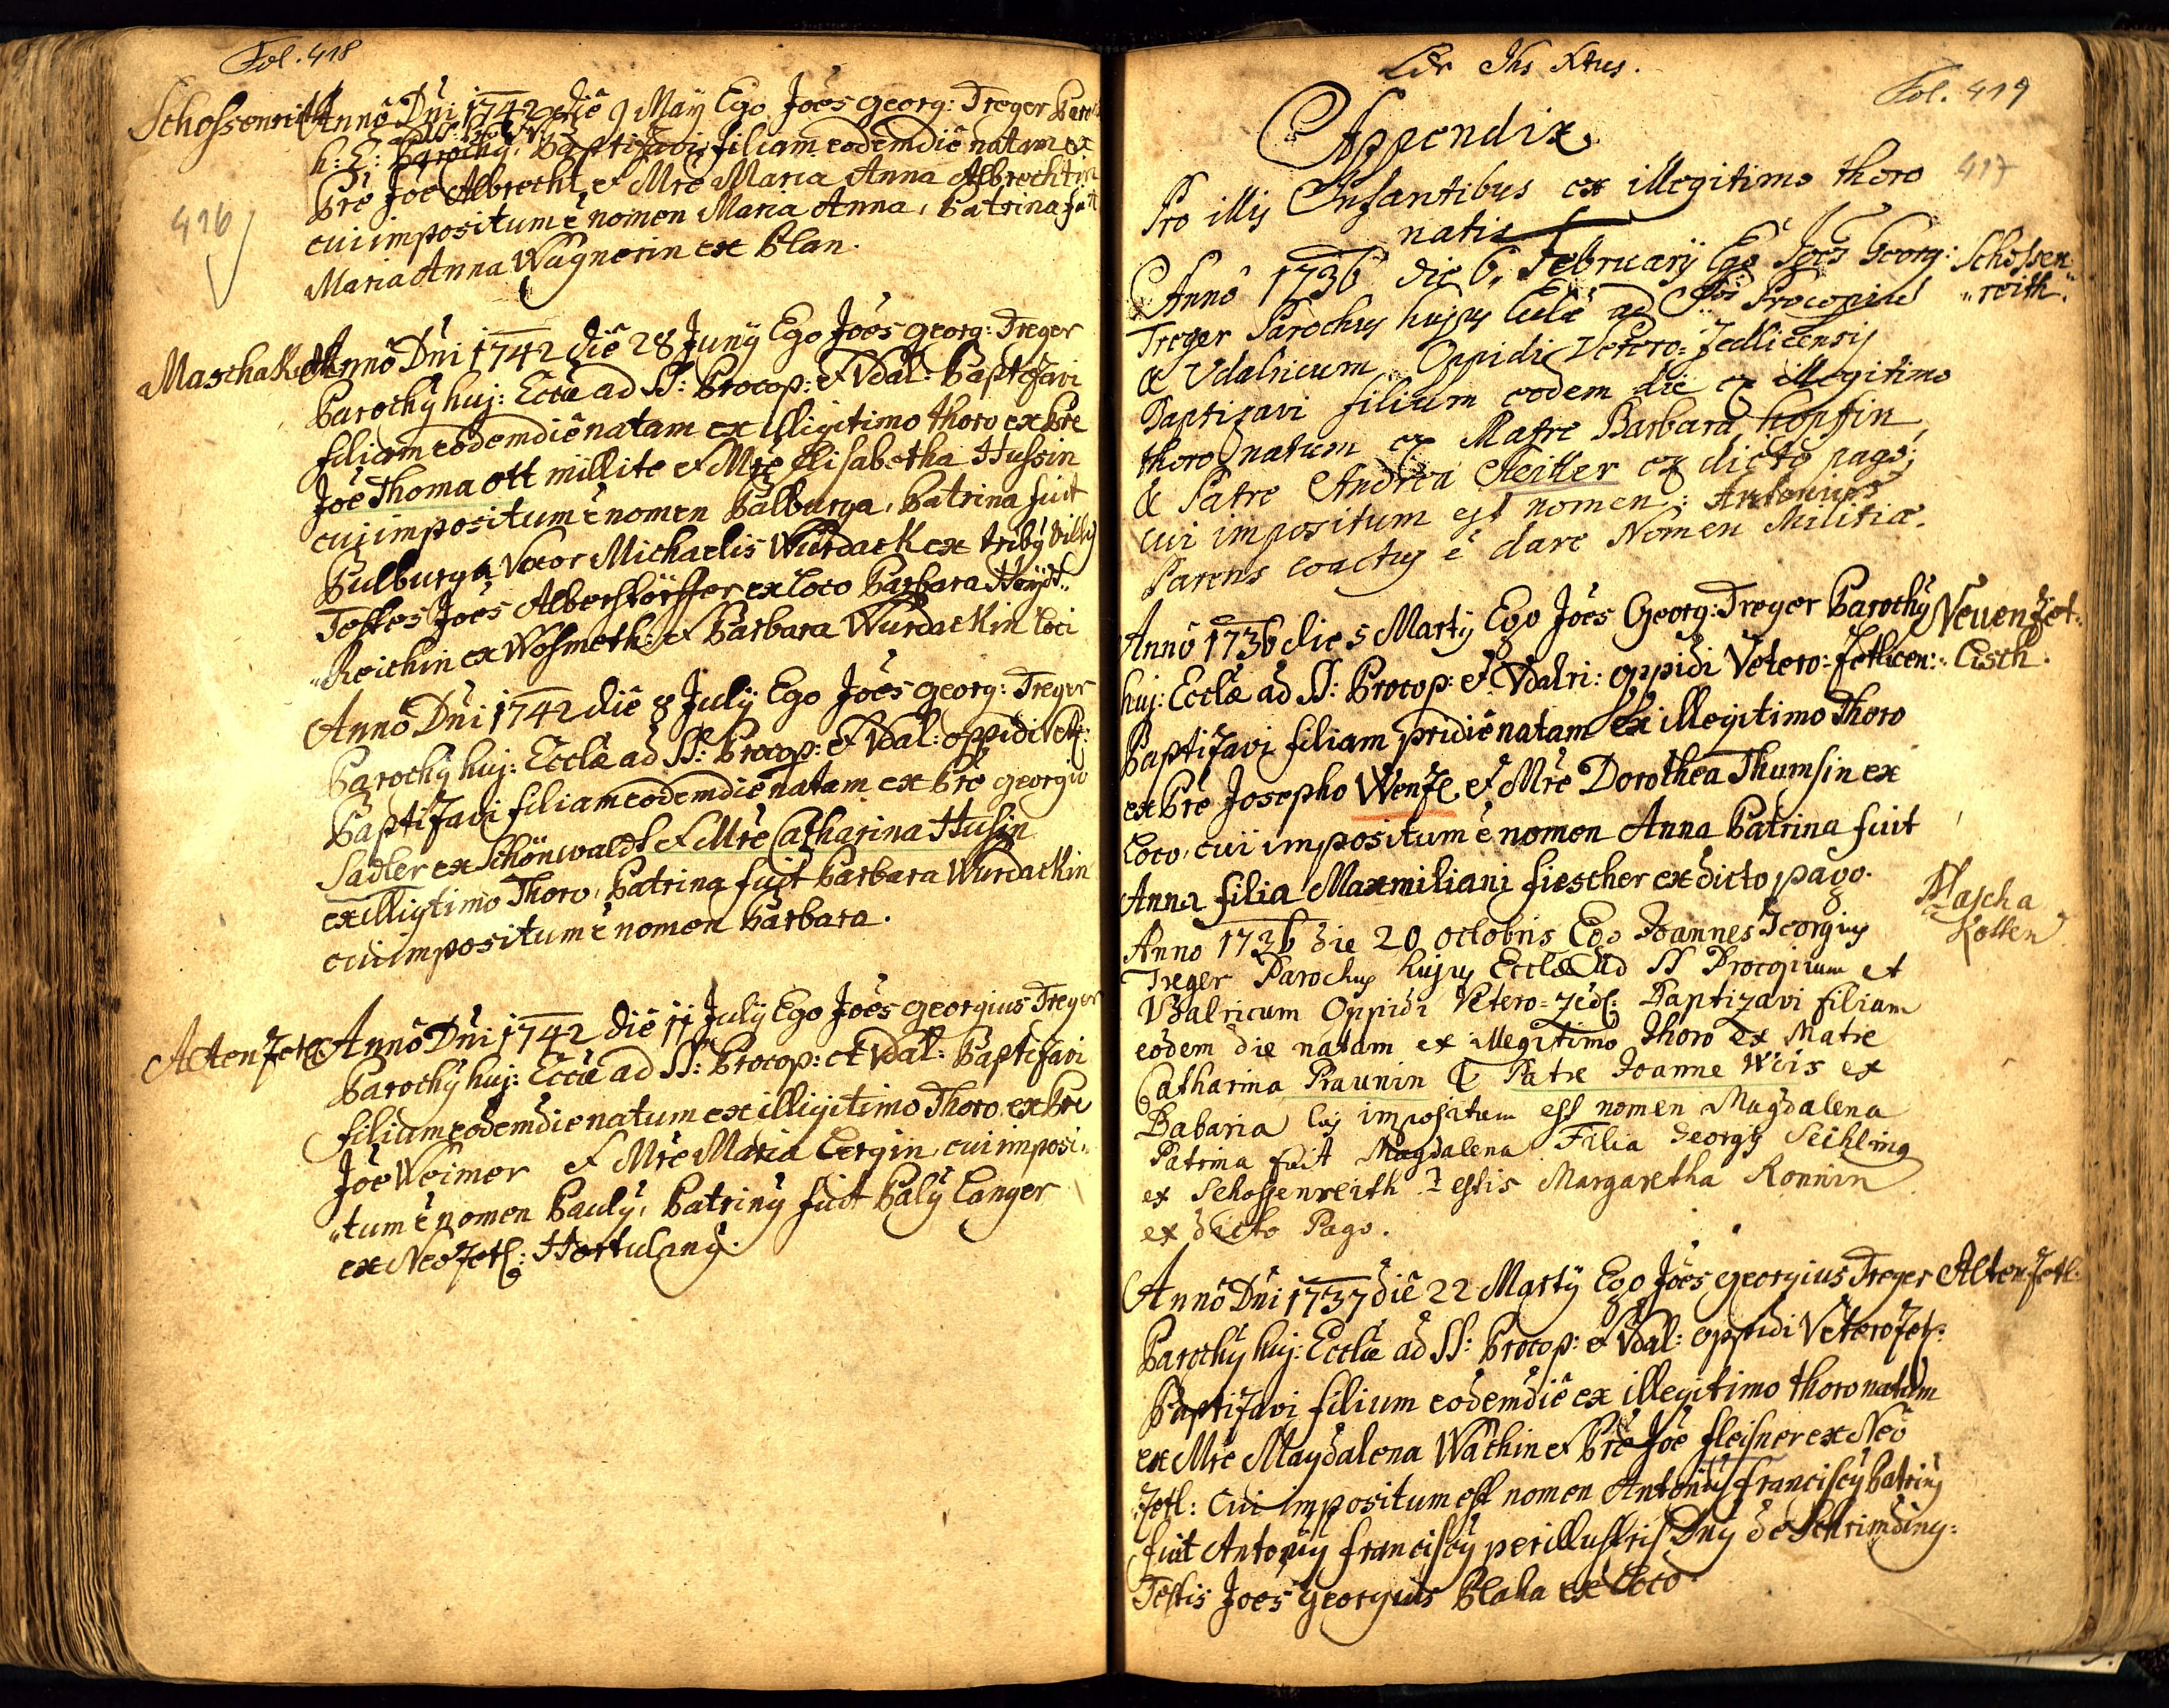 Fol. 418
Schossenrith Annô Dni 1742 die 9 May Ego Joês Georg: Treger Paro
h: E: Parochÿ, Baptizavi filiam eodem die natam ex
Pre Joe Albrecht et Mre Maria Anna Albrechtin
cui impositum ê nomen Maria Anna, Patrina fuit
Maria Anna Wagnerin ex Plan.
416
Maschakotten Annô Dni 1742 die 28 Junÿ Ego Joês georg: Treger
Parochÿ huj: Eccæ ad SS: Procop: et Vdal: Baptizavi
filiam eodem die natam ex illigitimo thoro ex Pre
Joê Thoma ott millite et Mre Elisabetha Hussin
cui impositum ê nomen Balburga, Patrina fuit
Bulburga Vxor Michaelis Wurdack ex tribÿ Villis
Testes Joês Alberstörffer ex loco Barbara Heÿdt„
„Reichin ex Wosmeth: et Barbara Wurdackin loci
Annô Dni 1742 die 8 Julÿ Ego Joês georg: Treger
Parochÿ huj: Ecclæ ad SS: Procop: et Vdal: oppidi Vet:
Baptizavi filiam eodem die natam ex Pre georgio
Sadler ex Schönwaldt et Mre Catharina Husin
ex illigtimo Thoro, Patrina fuit Barbara Wurdackin
cui impositum ê nomen Barbara.
Altenzetl Annô Dni 1742 die 11 Julÿ Ego Joês georgius Treger
Parochÿ huj: Eccæ ad SS: Procop: et Vdal: Baptizavi
filium eodem die natum ex illigitimo Thoro ex Pre
Joe Weimer et Mre Maria Lergin, cui imposi„
„tum ê nomen Paulÿ, Patrinÿ fuit Palÿ Langer
ex Neozetl: Hortulanÿ.
Fol. 419
Ihs Xtus.
Appendix
Pro illis Infantibus ex illegitimo thoro
417
natis
Annô 1736 die 6. Februarÿ Ego Joês Georg: Schossen„
Treger Parochus hujus Eclæ ad SS Procopium „reith.
& Udalricum Oppidi Vetero=Zedlicensis
Baptizavi filium eodem die ex illegitimo
thoro natum ex Matre Barbara Hopfin,
& Patre Andrea Reitter ex dicto pago;
cui impositum est nomen: Antonius
Parens coactus ê dare Nomen Militiæ.
Annô 1736 die 5 Martÿ Ego Joês Georg: Treger Parochÿ Neuenzet„
huj: Ecclæ ad SS: Procop: et Vdalri: oppidi Vetero=Zetlicen: „lisch.
Baptizavi filiam pridie natam ex illegitimo Thoro
ex Pre Josepho Wenzl et Mre Dorothea Thumsin ex
loco, cui impositum ê nomen Anna Patrina fuit
Anna filia Maxmiliani fiescher ex dicto pago.
Mascha
Kotten
Anno 1736 die 20 octobris Ego Joannes Georgius
Treger Parochus hujus Ecclæ ad SS Procopium et
Vdalricum Oppidi Vetero=zedl: Baptizavi filiam
eodem die natam ex illegitimo thoro ex Matre
Catharina Praunin & Patre Joanne Weis ex
Babaria Cuj impositum est nomen Magdalena
Patrina fuit Magdalena Filia Georgÿ Seihling
ex Schossenreith Testis Margaretha Ronnin
ex dicto Pago.
Annô Dni 1737 die 22 Martÿ Ego Joês georgius Treger Altenzetl:
Parochÿ huj: Ecclæ ad SS: Procop: et Vdal: oppidi Veterozet:
Baptizavi filium eodem die ex illegitimo thoro natum
ex Mre Magdalena Wachin et Pre Joe fleisner ex Neo
Zetl: cui impositum est nomen Antonius franciscÿ Patrinÿ
fuit Antonÿ franciscÿ perillustris Dnÿ de Schirnding:
Testis Joes georgius Blaha ex loco.